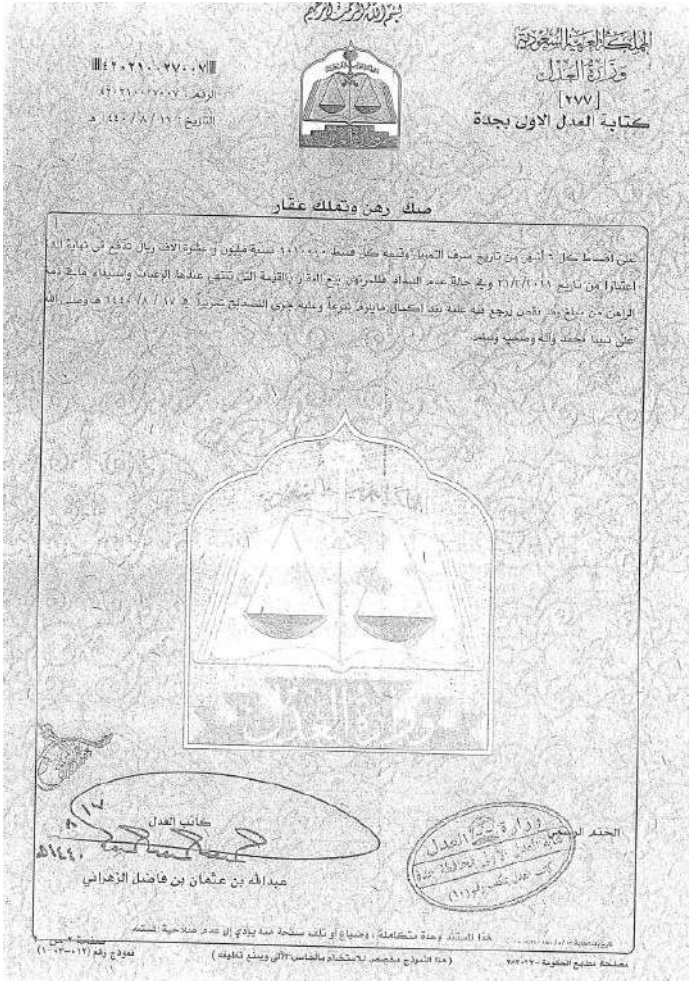 بسم الله الرحمن الرحيم
المملكة العربية السعودية
وزارة العدل
[٢٧٧]
كتابة العدل الاولى بجدة
٤٢٠٢١٠٠٢٧٠٠٧
الرقم : ٤٢٠٢١٠٠٢٧٠٠٧
التاريخ : ١٦ / ٨ / ١٤٤٠ هـ
صك رهن وتملك عقار
على اقساط كل ٦ أشهر من تاريخ صرف التمويل وقيمة كل قسط مليون وعشرة الاف ريال تدفع في نهاية
اعتبارا من تاريخ وفي حالة عدم السداد فللمرتهن بيع العقار بالقيمة التي تنتهي عندها الرغبات واستيفاء ما في ذمة
الراهن من مبلغ وما نقص يرجع فيه عليه بعد اكمال مايلزم شرعاً وعليه جرى التصديق تحريراً في ١٧ / ٨ / ١٤٤٠ هـ وصلى الله
على نبينا محمد وآله وصحبه وسلم
وزارة العدل
كاتب العدل
١٧
٨
١٤٤٠هـ
عبدالله بن عثمان بن فاضل الزهراني
الختم الرسمي
وزارة العدل
هذا المستند وحدة متكاملة ، وضياع أو تلف صفحة منه يؤدي إلى عدم صلاحية المستند
مصلحة مطابع الحكومة
( هذا النموذج مخصص للاستخدام بالحاسب الآلي ويمنع تغليفه )
نموذج رقم (١٢-٠٣-٠١)